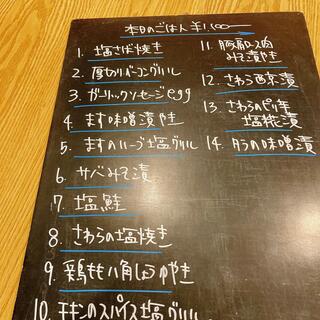 本日のごはん ¥1,100ー
1. 塩さば焼き
2. 厚切りベーコングリル
3. ガーリックソーセージegg
4. ます味噌漬やき
5. ますのハーブ塩グリル
6. サバみそ漬
7. 塩鮭
8. さわらの塩焼き
9. 鶏もも八角しょうゆやき
10. チキンのスパイス塩グリル
11. 豚肩ロース肉
みそ漬やき
12. さわら西京漬
13. さわらのピリ辛
塩糀漬
14. タラの味噌漬